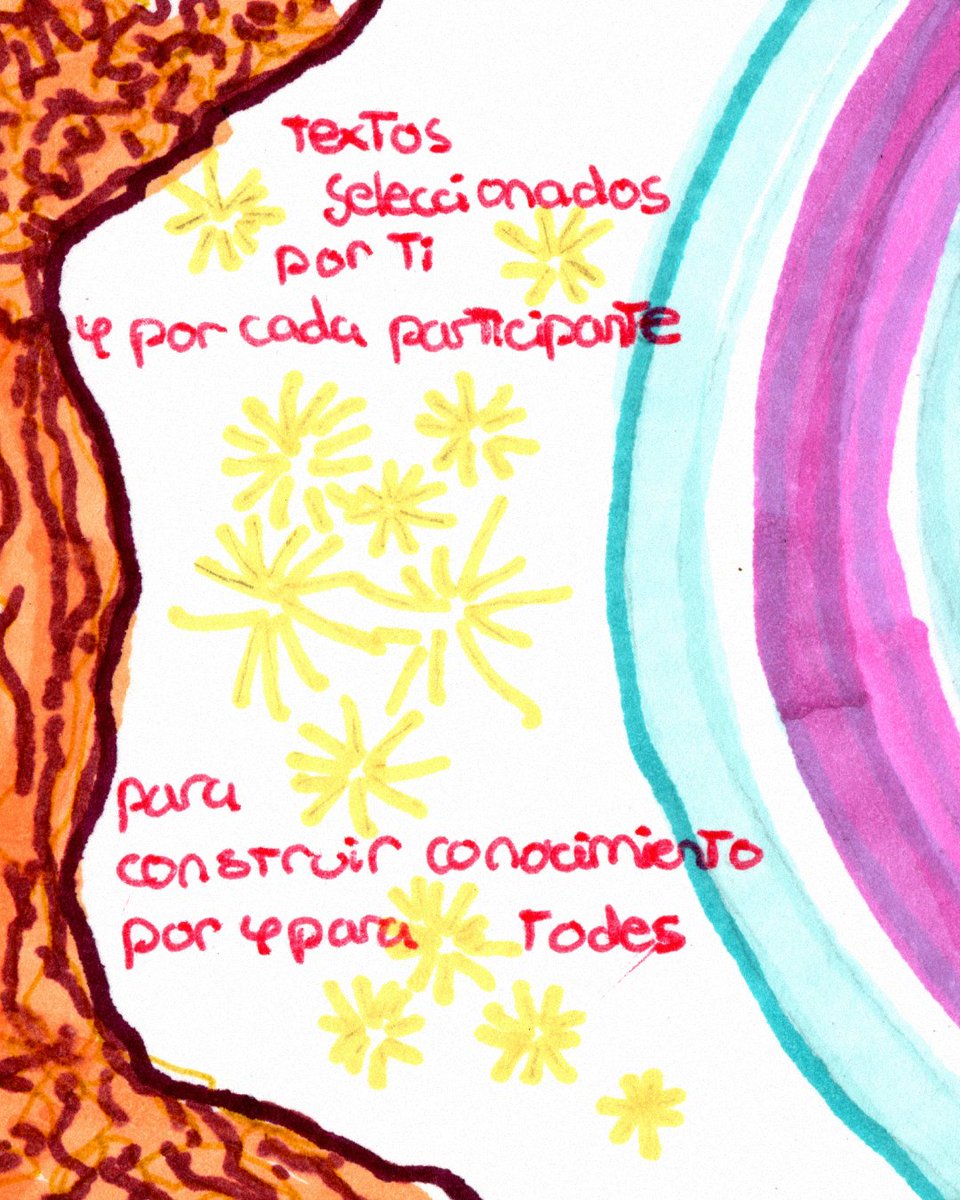 Textos
seleccionados
por Ti
y por cada participante
para
construir conocimiento
por y para Todes